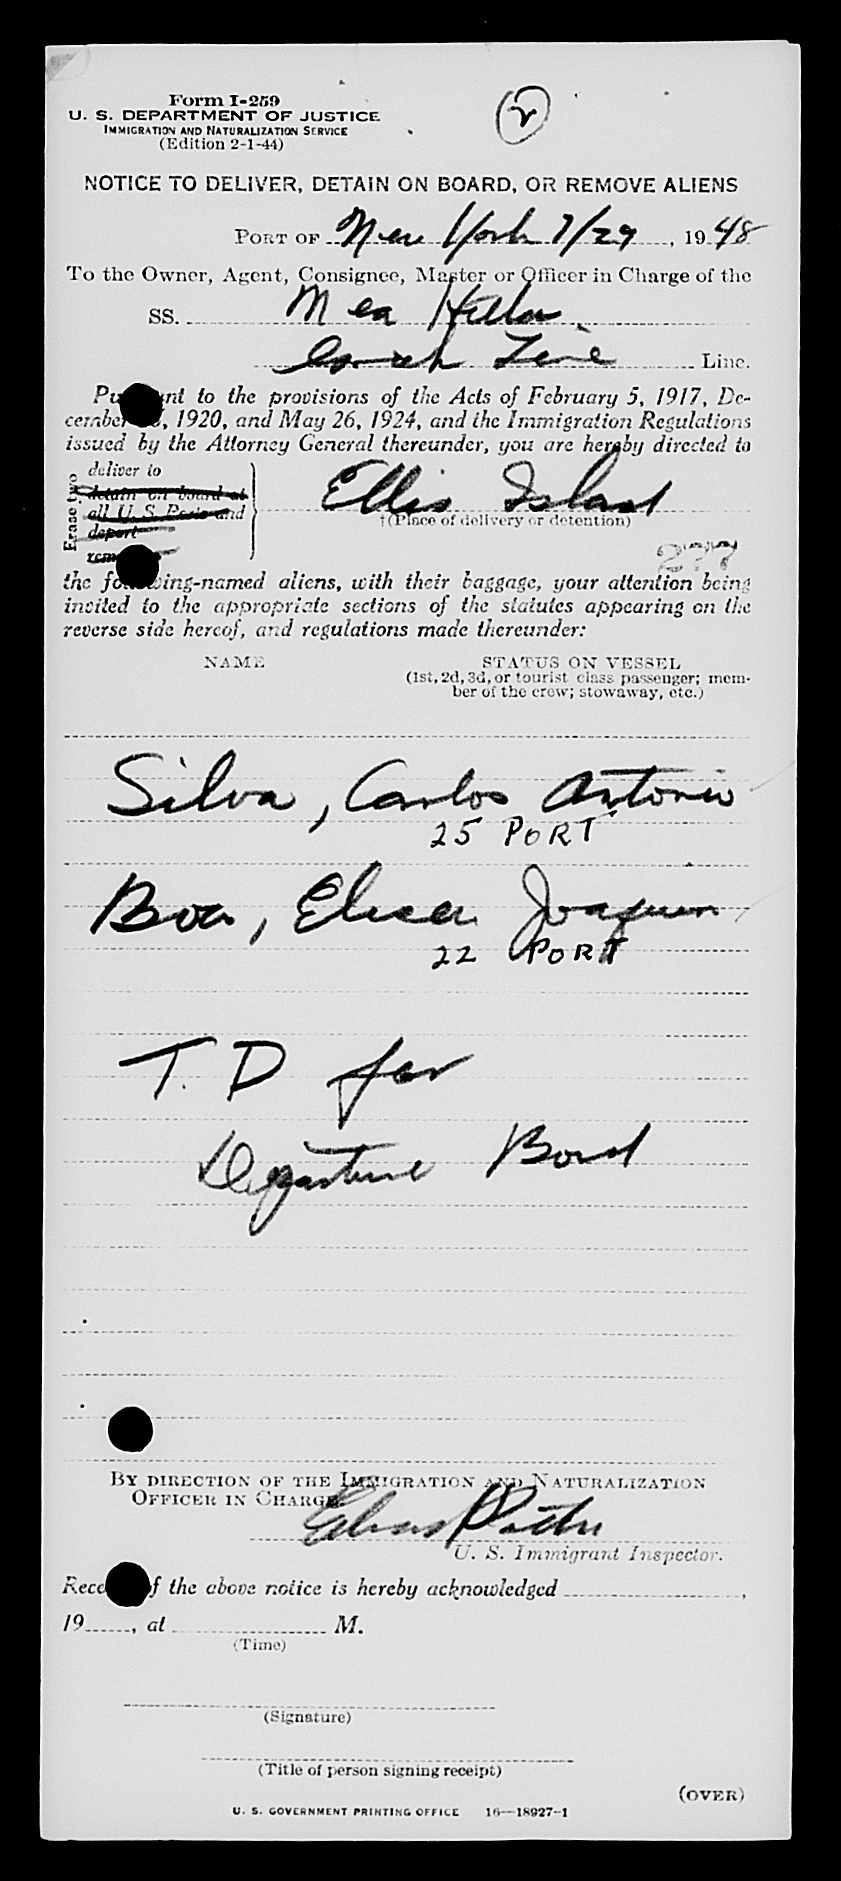 Form I-259
U. S. DEPARTMENT OF JUSTICE
IMMIGRATION AND NATURALIZATION SERVICE
(Edition 2-1-44)
2
NOTICE TO DELIVER, DETAIN ON BOARD, OR REMOVE ALIENS
PORT OF New York 7/29, 1948
To the Owner, Agent, Consignee, Master or Officer in Charge of the
SS. Mea
Line Line.
Pu nt to the provisions of the Acts of February 5, 1917, De-
cember , 1920, and May 26, 1924, and the Immigration Regulations
issued by the Attorney General thereunder, you are hereby directed to
Erase two
deliver to
detain on board at
all U. S. Ports and
deport
rem
Ellis Island
†(Place of delivery or detention)
277
the fo ing-named aliens, with their baggage, your attention being
invited to the appropriate sections of the statutes appearing on the
reverse side hereof, and regulations made thereunder:
NAME STATUS ON VESSEL
(1st, 2d, 3d, or tourist class passenger; mem-
ber of the crew; stowaway, etc.)
Silva, Carlos Antonio
25 PORT
Boa, Elisa Joaquin
22 PORT
T. D for
Departure Bond
BY DIRECTION OF THE IMMIGRATION AND NATURALIZATION
OFFICER IN CHARGE.
U. S. Immigrant Inspector.
Rece f the above notice is hereby acknowledged ,
19 , at M.
(Time)
(Signature)
(Title of person signing receipt)
(OVER)
U. S. GOVERNMENT PRINTING OFFICE 16—18927-1